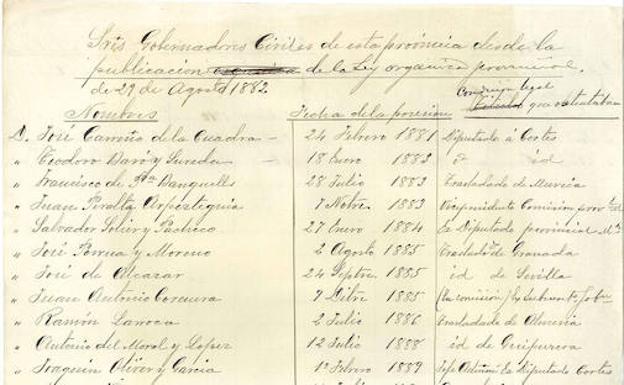 Sres Gobernadores Civiles de esta provincia desde la
publicacion de la Ley organica provincial
de 29 de Agosto 1882
Condicion legal
que ostentaban
Nombres Fecha de la posesion
D. José Carreño de la Cuadra — 24 Febrero 1881 Diputado á Cortes
" Teodoro Baró y Sureda — 18 Enero 1883 id
" Francisco de Pa Banquells 28 Julio 1883 Trasladado de Murcia
" Juan Peralta 7 Novre 1883 Vicepresidente Comision provl
" Salvador Soliér y Pacheco 27 Enero 1884 Ex Diputado provincial
" José Porrua y Moreno 2 Agosto 1885 Trasladdo de Granada
" José de Alcazar 24 Septre 1885 id de Sevilla
" Juan Antonio Corcuera 9 Dibre 1885 (En comision)
" Ramón Larroca 2 Julio 1886 Trasladado de Almeria
" Antonio del Moral y Lopez 12 Julio 1888 id de Guipuzcoa
" Joaquin Oliver y Garcia 1º Febrero 1889 Ex Diputado Cortes